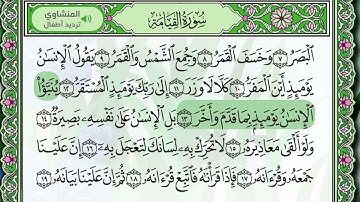 المنشاوي
ترديد أطفال
سُورَةُ الْقِيَامَةِ
الْبَصَرُ ٧ وَخَسَفَ الْقَمَرُ ٨ وَجُمِعَ الشَّمْسُ وَالْقَمَرُ ٩ يَقُولُ الْإِنْسَانُ
يَوْمَئِذٍ أَيْنَ الْمَفَرُّ ١٠ كَلَّا لَا وَزَرَ ١١ إِلَىٰ رَبِّكَ يَوْمَئِذٍ الْمُسْتَقَرُّ ١٢ يُنَبَّؤُا
الْإِنْسَانُ يَوْمَئِذٍ بِمَا قَدَّمَ وَأَخَّرَ ١٣ بَلِ الْإِنْسَانُ عَلَىٰ نَفْسِهِ بَصِيرَةٌ ١٤
وَلَوْ أَلْقَىٰ مَعَاذِيرَهُ ١٥ لَا تُحَرِّكْ بِهِ لِسَانَكَ لِتَعْجَلَ بِهِ ١٦ إِنَّ عَلَيْنَا
جَمْعَهُ وَقُرْءَانَهُ ١٧ فَإِذَا قَرَأْنَاهُ فَاتَّبِعْ قُرْءَانَهُ ١٨ ثُمَّ إِنَّ عَلَيْنَا بَيَانَهُ ١٩